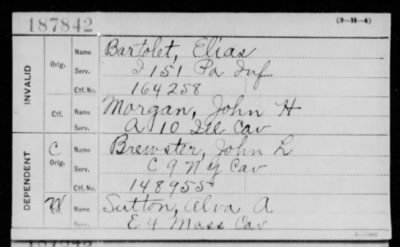 187842 (3-H-4)
INVALID Orig. Name Bartolet, Elias
Serv. I 151 Pa Inf
Ctf. No. 164258
Ctf. Name Morgan, John H
A 10 Ill Cav
DEPENDENT C Orig. Name Brewster, John L
Serv. C 9 N Y Cav
Ctf. No. 148955
W Name Sutton, Alva A
E 4 Mass Cav
187842